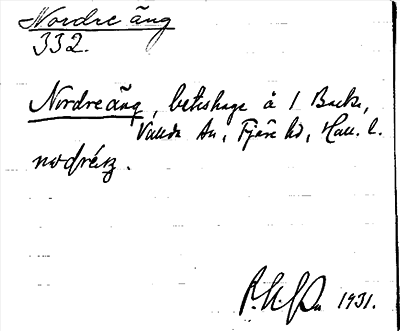 Nordre äng
332.
Nordreäng, beteshage å 1 Backe,
Vallda sn, Fjäre hd, Hall. l.
1931.